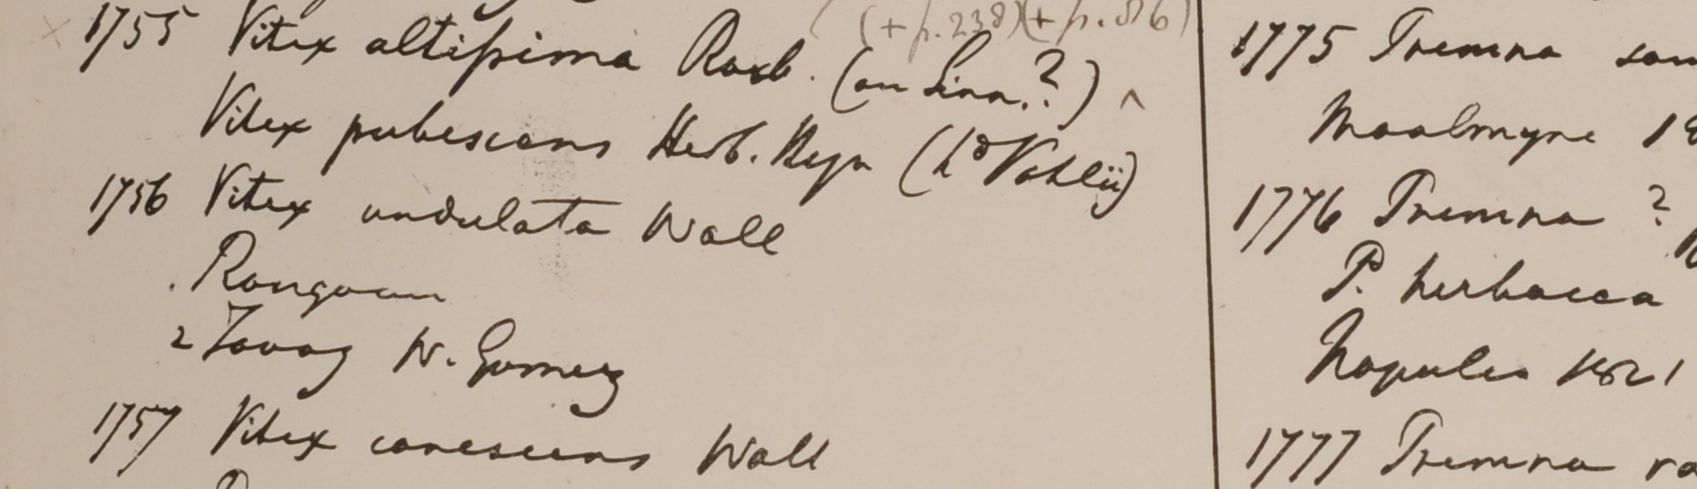 (+ p. 238)(+ p. 86)
1755 Vitex altissima Roxb. (an Linn.?) ^
Vitex pubescens Herb. Heyn (h^d Vahlii)
1756 Vitex undulata Wall
. Rangoon
2 Tavoy W. Gomez
1757 Vitex canescens Wall
1775 Premna
Moalmyne 18
1776 Premna ?
P. herbacea
Napalia 1821
1777 Premna